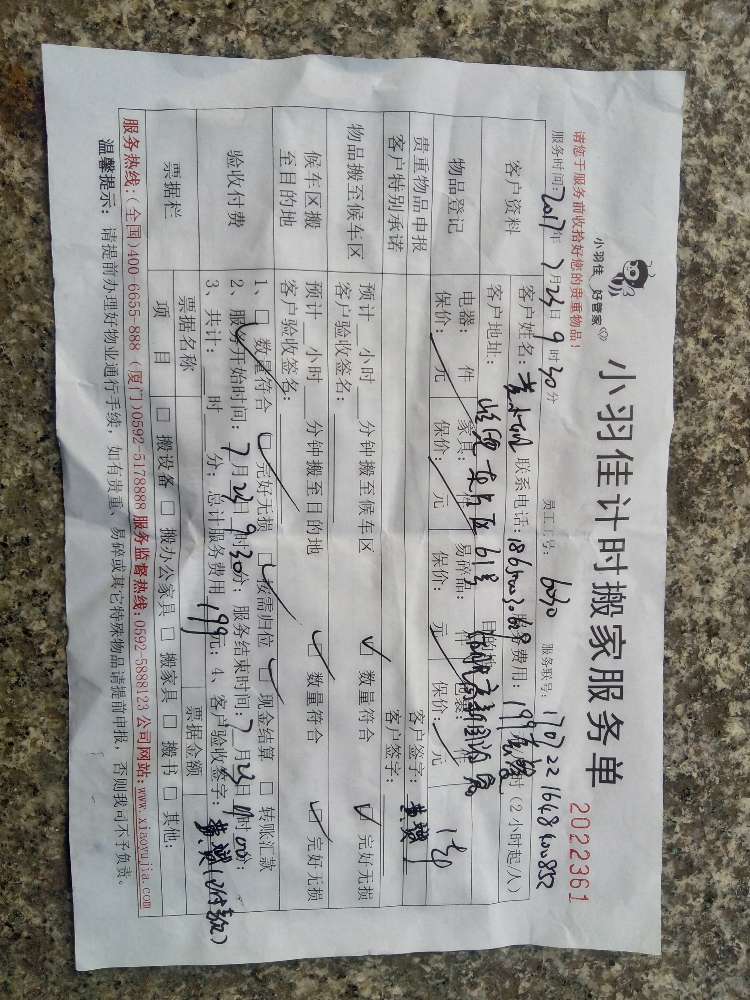 小羽佳 好管家
小羽佳计时搬家服务单
2022361
请您于服务前收拾好您的贵重物品!
服务时间: 2017年 7月23日 9时30分 员工工号: 6030 服务联号:
客户资料 客户姓名: 联系电话: 服务费用: 199 时(2小时起/人)
客户地址: 61号 目的地:
物品登记 电器: 件 家具: 件 易碎品: 件 包装: 件
保价: 元 保价: 元 保价: 元 保价: 元
贵重物品申报 客户签字:
客户特别承诺 客户签字:
物品搬至候车区 预计 小时 分钟搬至候车区 ☑ 数量符合 ☑ 完好无损
客户验收签名:
候车区搬至目的地 预计 小时 分钟搬至目的地 ☑ 数量符合 ☑ 完好无损
客户验收签名:
验收付费 1、☑ 数量符合 ☑ 完好无损 ☑ 按需归位 ☑ 现金结算 □ 转账汇款
2、服务开始时间: 7月23日9时30分; 服务结束时间: 7月23日11时00分;
3、共计: 时 分; 总计服务费用 199元; 4、客户验收签字: (已付款)
票据栏 票据名称 票据金额
项目 □ 搬设备 □ 搬办公家具 □ 搬家具 □ 搬书 □ 其他:
服务热线:(全国)400-6655-888 (厦门)0592-5178888 服务监督热线:0592-5888123 公司网站:www.xiaoyujia.com
温馨提示: 请提前办理好物业通行手续, 如有贵重、易碎或其它特殊物品请提前申报, 否则我司不予负责。